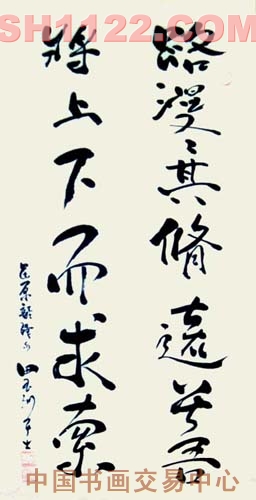 SH1122.COM
路漫々其修遠兮吾
将上下而求索
屈原離騷句
中国书画交易中心